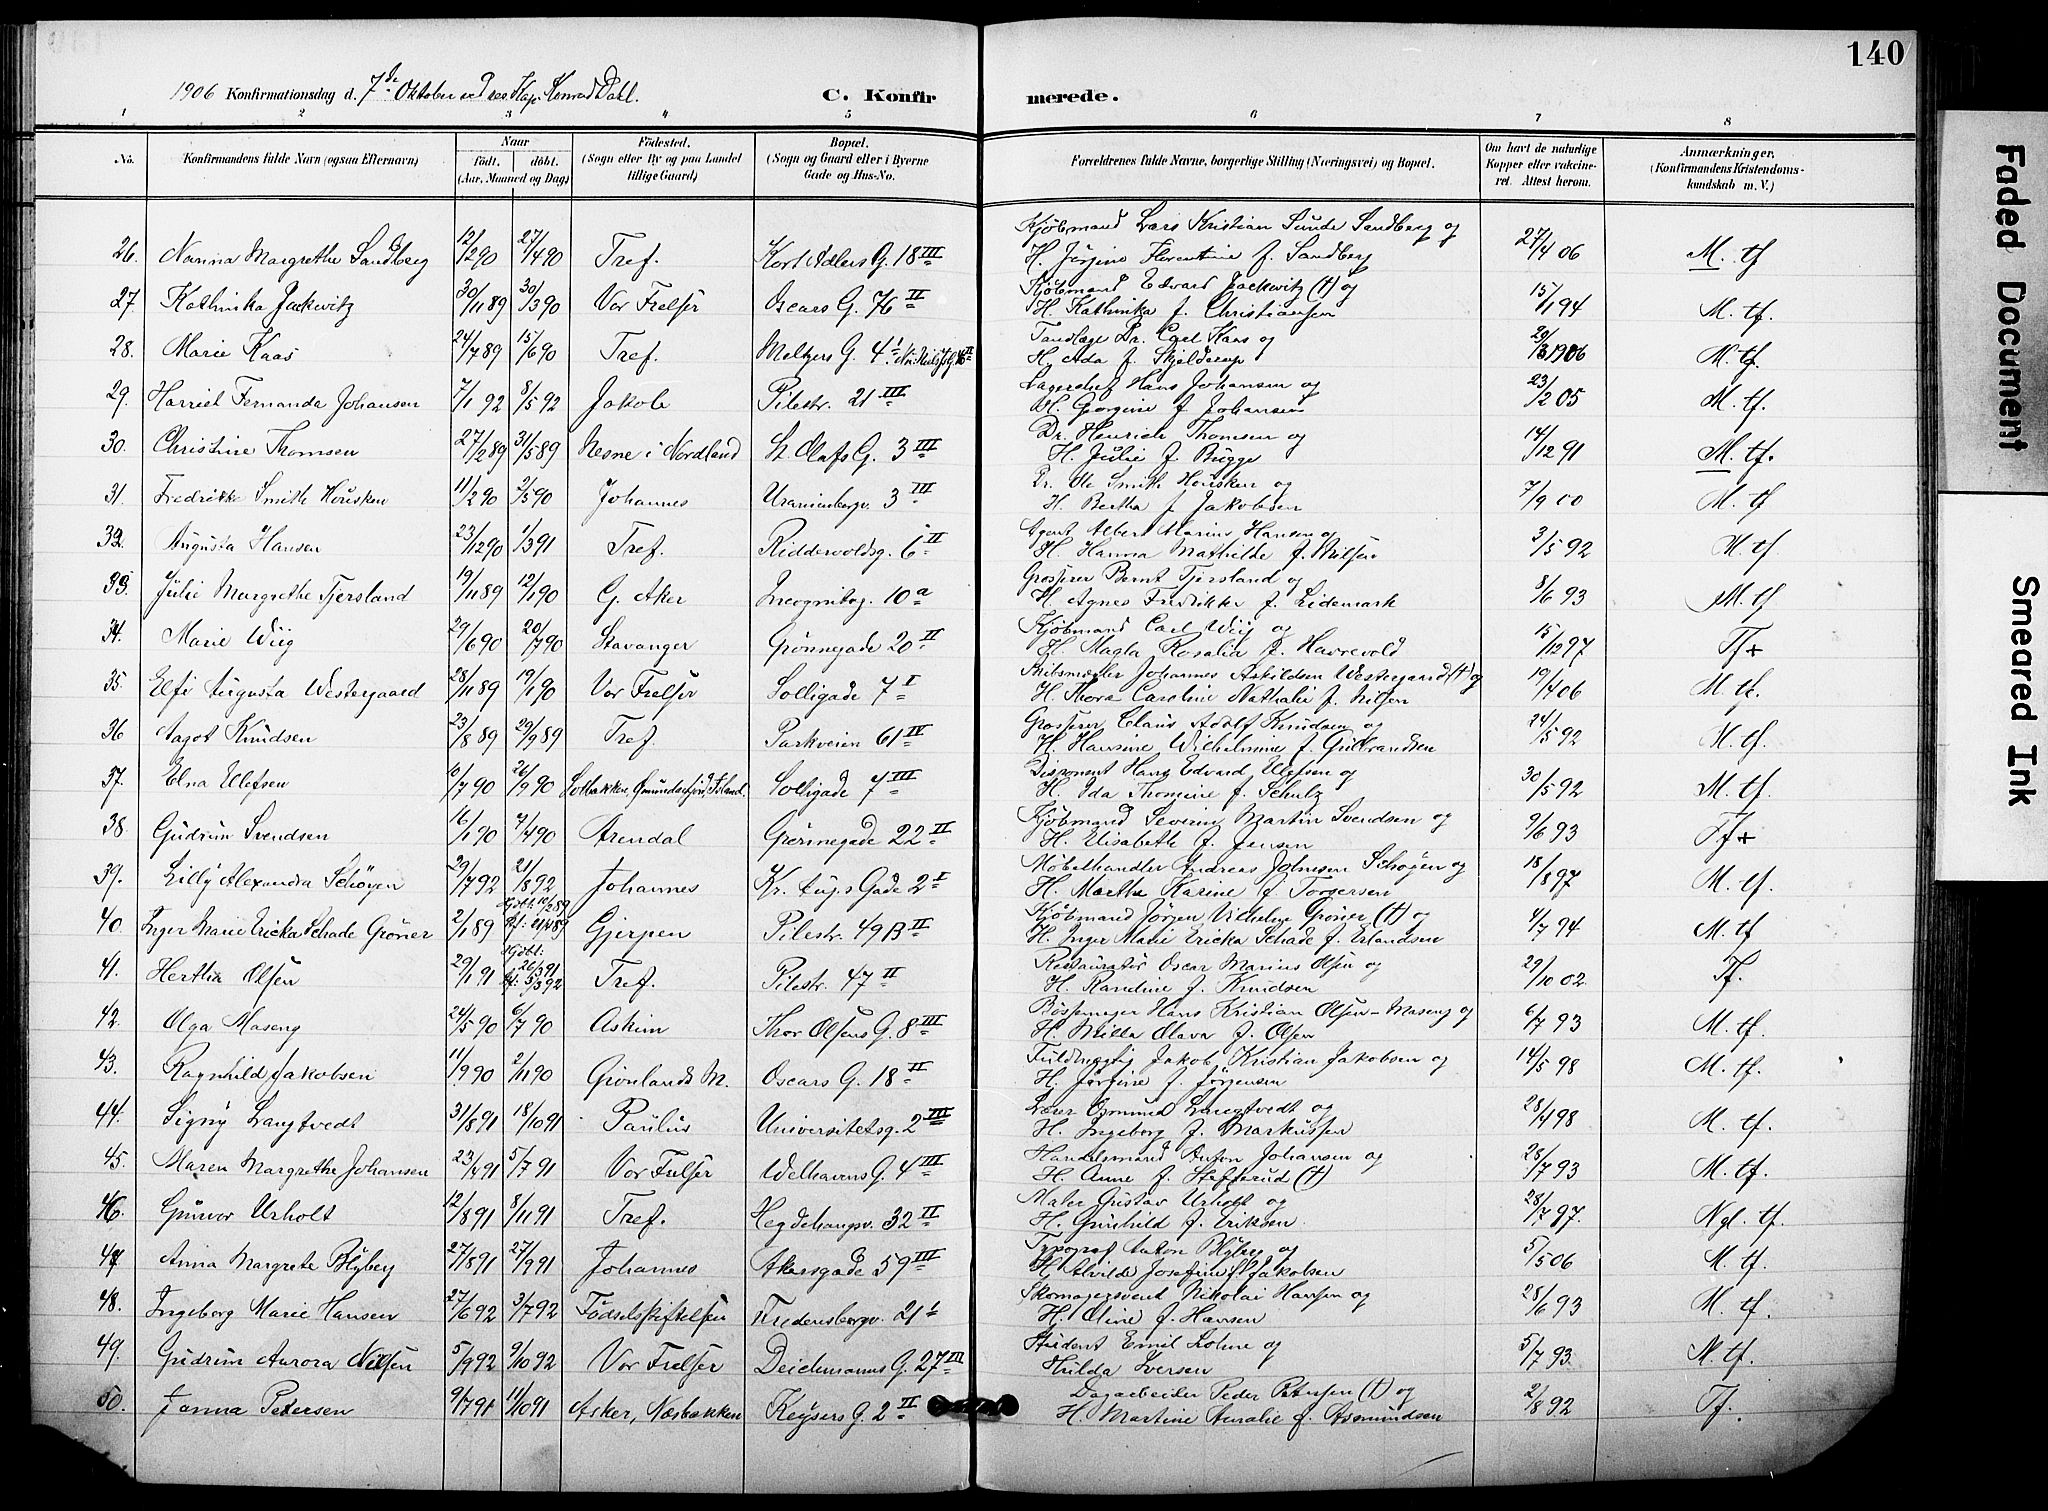 140
1906 Konfirmationsdag d. 7de Oktober ved res. Kap. Konrad Dahl. C. Konfirmerede.
1 2 3 4 5 6 7 8
No. Konfirmandens fulde Navn (ogsaa Efternavn) Naar født. døbt. (Aar, Maaned og Dag) Fødested. (Sogn eller By og paa Landet tillige Gaard) Bopæl. (Sogn og Gaard eller i Byerne Gade og Hus-No. Forældrenes fulde Navne, borgerlige Stilling (Næringsvei) og Bopæl. Om havt de naturlige Kopper eller vakcineret. Attest herom. Anmærkninger. (Konfirmandens Kristendomskundskab m. V.)
Kjøbmand Lars Kristian Sunde Sandberg og
26. Nanna Margrethe Sandberg 12/2 90 27/4 90 Tref. Kort Adlers G. 18 III H. Jørgine Florentine f. Sandberg 27/4 06 M. tf
Kjøbmand Edvard Jackwitz (†) og
27. Kathinka Jackwitz 30/11 89 30/3 90 Vor Frelser Oscars G. 76 II H. Kathinka f. Christiansen 15/1 94 M. tf.
Tandlæge Dr. Carl Kaas og
28. Marie Kaas 24/7 89 15/6 90 Tref. Meltzers G. 4 H. Ada f. Skjelderup 29/3 1906 M. tf.
Lagerchef Hans Johansen og
29. Harriet Fernanda Johansen 7/1 92 8/5 92 Jakob Pilestr. 21 III H. Georgine f. Johansen 23/2 05 M. tf.
Dr. Henrich Thomsen og
30. Christine Thomsen 27/2 89 31/5 89 Nesne i Nordland St. Olafs G. 3 III H. Julie f. Bugge 14/12 91 M. tf.
Dr. Ole Smith Housken og
31. Fredrikke Smith Housken 11/2 90 2/5 90 Johannes Uranienborgv. 3 III H. Bertha f. Jakobsen 7/9 00 M. tf
Agent Albert Marius Hansen og
32. Augusta Hansen 23/12 90 1/3 91 Tref. Riddervoldsg. 6 II H. Hanna Mathilde f. Nilsen 3/5 92 M. tf
Grosserer Bernt Tjersland og
33. Julie Margrethe Tjersland 19/11 89 12/1 90 G. Aker Incognitog. 10 a H. Agnes Fredrikke f. Lidemark 8/6 93 M. tf
Kjøbmand Carl Wiig og
34. Marie Wiig 29/6 90 20/7 90 Stavanger Grønnegade 20 II H. Magla Rosalia f. Havrevold 15/12 97 Tf+
Skibsmægler Johannes Askildsen Westergaard (†) og
35. Elfi Augusta Westergaard 28/11 89 19/1 90 Vor Frelser Solligade 7 I H. Thora Caroline Nathalie f. Nilsen 19/4 06 M. tf.
Grosserer Claus Adolf Knudsen og
36 Aagot Knudsen 23/8 89 29/9 89 Tref. Parkveien 61 II H. Hansine Wilhelmine f. Gulbrandsen 24/5 92 M. tf.
Disponent Hans Edvard Ellefsen og
37. Elna Ellefsen 10/7 90 26/9 90 Solbakken, Ønundarfjord, Island. Solligade 7 III H. Ida Thomine f. Schulz 30/5 92 M. tf.
Kjøbmand Severin Martin Svendsen og
38. Gudrun Svendsen 16/1 90 7/4 90 Arendal Grønnegade 22 II H. Elisabeth f. Jensen 9/6 93 Tf+
Møbelhandler Andreas Johnsen Schøyen og
39. Lilly Alexandra Schøyen 29/7 92 21/8 92 Johannes Kr. Aug.s Gade 2 I H. Martha Karine f. Torgersen 18/8 97 M. tf.
Hjdbt. 10/2 89 Kjøbmand Jørgen Vilhelm Grøner (†) og
40. Inger Marie Ericka Schade Grøner 2/1 89 Bf: 21/4 89 Gjerpen Pilestr. 49 B II H. Inger Marie Ericka Schade f. Erlandsen 4/7 94 M. tf
Hjdbt: Restauratør Oscar Marius Olsen og
41. Hertha Olsen 29/1 91 26/3 91 Bf: 5/3 92 Tref. Pilestr. 47 II H. Randine f. Knudsen 29/10 02 Tf.
Hans Kristian Olsen-Maseng og
42. Olga Maseng 24/5 90 6/7 90 Askim Thor Olsens G. 8 III H. Milla Olava f. Olsen 6/7 93 M. tf.
Fuldmægtig Jakob Kristian Jakobsen og
43. Ragnhild Jakobsen 11/9 90 2/11 90 Grønlands M. Oscars G. 18 II H. Jørgine f. Jørgensen 14/5 98 M. tf.
Lærer Osmund Langtvedt og
44. Signy Langtvedt 31/8 91 18/10 91 Paulus Universitetsg. 2 III H. Ingeborg f. Markussen 28/4 98 M. tf.
Handelsmand Anton Johansen og
45. Maren Margrethe Johansen 23/4 91 5/7 91 Vor Frelser Welhavens G. 4 III H. Anne f. Hefterud (†) 28/7 93 M. tf.
Maler Gustav Urholt og
46. Gunvor Urholt 12/8 91 8/11 91 Tref. Hegdehaugsv. 32 II H. Gunhild f. Eriksen 28/7 97. Ngl. tf.
Typograf Anton Blyberg og
47 Anna Margrete Blyberg 27/8 91 27/9 91 Johannes Akersgade 59 III H. Alvilde Josefine f. Jakobsen 5/5 06 M. tf.
Skomagersvend Nikolai Hansen og
48. Ingeborg Marie Hansen 27/6 92 3/7 92 Fødselsstiftelsen Fredensborgv. 21 H. Oline f. Hansen 28/6 93 M. tf.
Student Emil Lohne og
49. Gudrun Aurora Nilsen 5/9 92 9/10 92 Vor Frelser Deichmanns G. 27 III Hulda Iversen 5/7 93 M. tf.
Dagarbeider Peder Petersen (†) og
50. Janna Petersen 9/7 91 11/10 91 Asker, Næsbakken Keysers G. 2 II H. Martine Amalie f. Asmundsen 2/8 92 Tf.
Faded Document
Smeared Ink